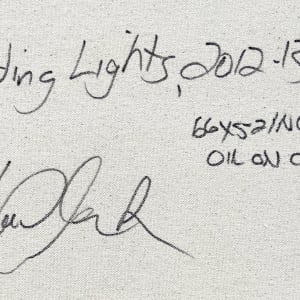 ding Lights, 2012-13
66x52 INC
OIL ON C